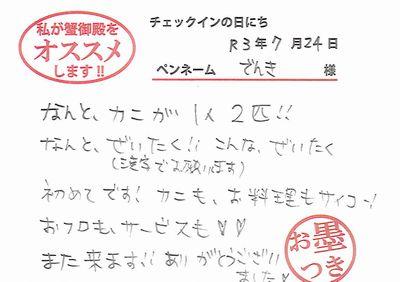 私が蟹御殿を
オススメ
します!!
チェックインの日にち
R3年7月24日
ペンネーム でんき 様
なんと、カニが 1人 2匹!!
なんと、ぜいたく!! こんな、ぜいたく
(漢字でお願いします)
初めてです! カニも、お料理もサイコー!
おフロも、サービスも♡♡
また来ます!! ありがとうござい
ました♡
お墨
つき